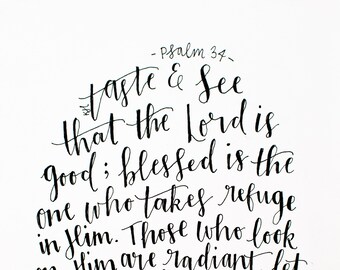 - Psalm 34 -
taste & see
that the Lord is
good; blessed is the
one who takes refuge
in Him. Those who look
Him are radiant